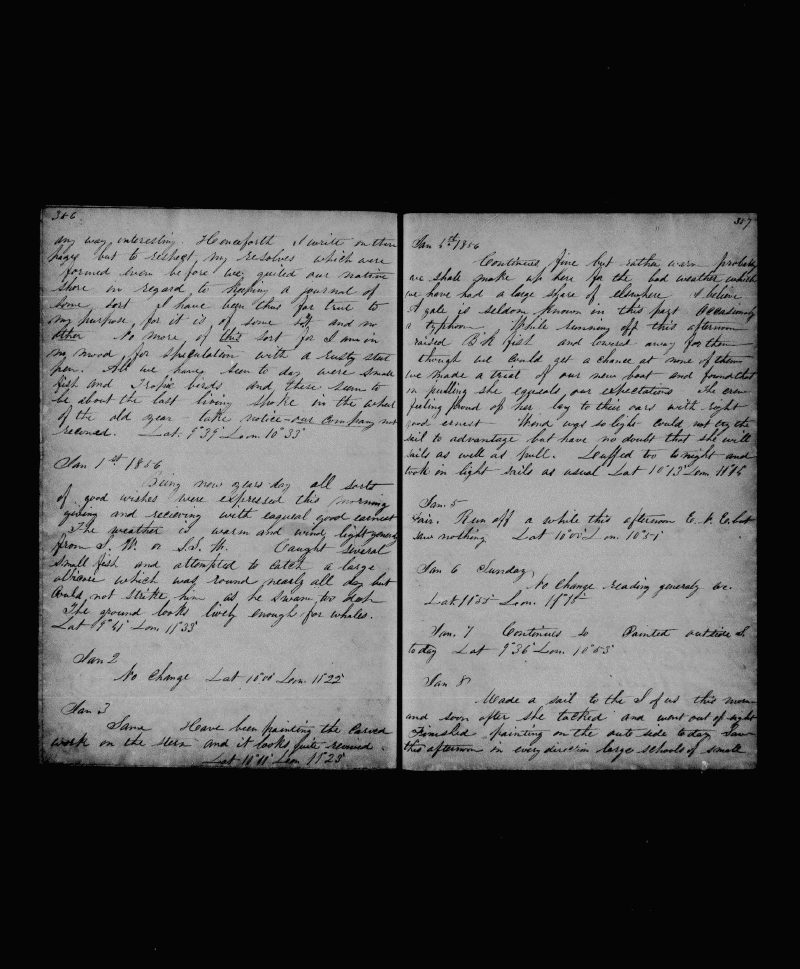 386
any way, interesting. Henceforth I write on thise
pages but to respect, my resolves which were
formed even before we quited our native
shore in regard to keeping a journal of
some sort I have been thus far true to
my purpose, for it is of some sort and no
other No more of this sort for I am in
no mood for speculation with a rusty steel
pen. All we have seen to day were small
fish and Tropic birds and these seem to
be about the last living spoke in the wheel
of the old year take notice our company not
reconed. Lat. 9°39' Lon. 10°33'
Jan 1st 1856
Being new years day all sorts
of good wishes were expressed this morning
giving and recieving with eaqueal good earnest
The weather is warm and wind light yours
from S. W. or S.S.W. Caught several
small fish and attempted to catch a large
which was round nearly all day but
could not strike him as he swam too deep
The ground looks lively enough for whales.
Lat 9°41' Lon. 11°33'
Jan 2
No Change Lat 10°00' Lon. 11°22'
Jan 3
Same Have been painting the carved
work on the stern and it looks quite revived.
Lat 10°11' Lon 11°23'
387
Jan 1856
Continues fine but rather warm probably
we shall make up here for the bad weather which
we have had a large share of elsewhere I believe
A gale is seldom known in this part Occasionaly
a typhoon. While running off this afternoon
raised B k fish and lowered away for them
though we could get a chance at none of them
we made a trial of our new boat and found that
in pulling she eaqueals our expectations The crew
feeling proud of her lay to their oars with right
good ernest Wind was so light could not try the
sail to advantage but have no doubt that she will
sails as well as pull. Luffed too to night and
took in light sails as usual Lat 10°13' Lon
Jan. 5
Fair. Run off a while this afternoon E. N. E. but
saw nothing Lat 10°00' Lon 10°51'
Jan 6 Sunday
No Change reading generaly &c.
Lat Lon.
Jan. 7 Continues so Painted outside S.
to day Lat 9°36' Lon. 10°53'
Jan 8
Made a sail to the S of us this morn
and soon after she tacked and went out of sight
Finished painting on the out side to day Saw
this afternoon in every direction large schools of small